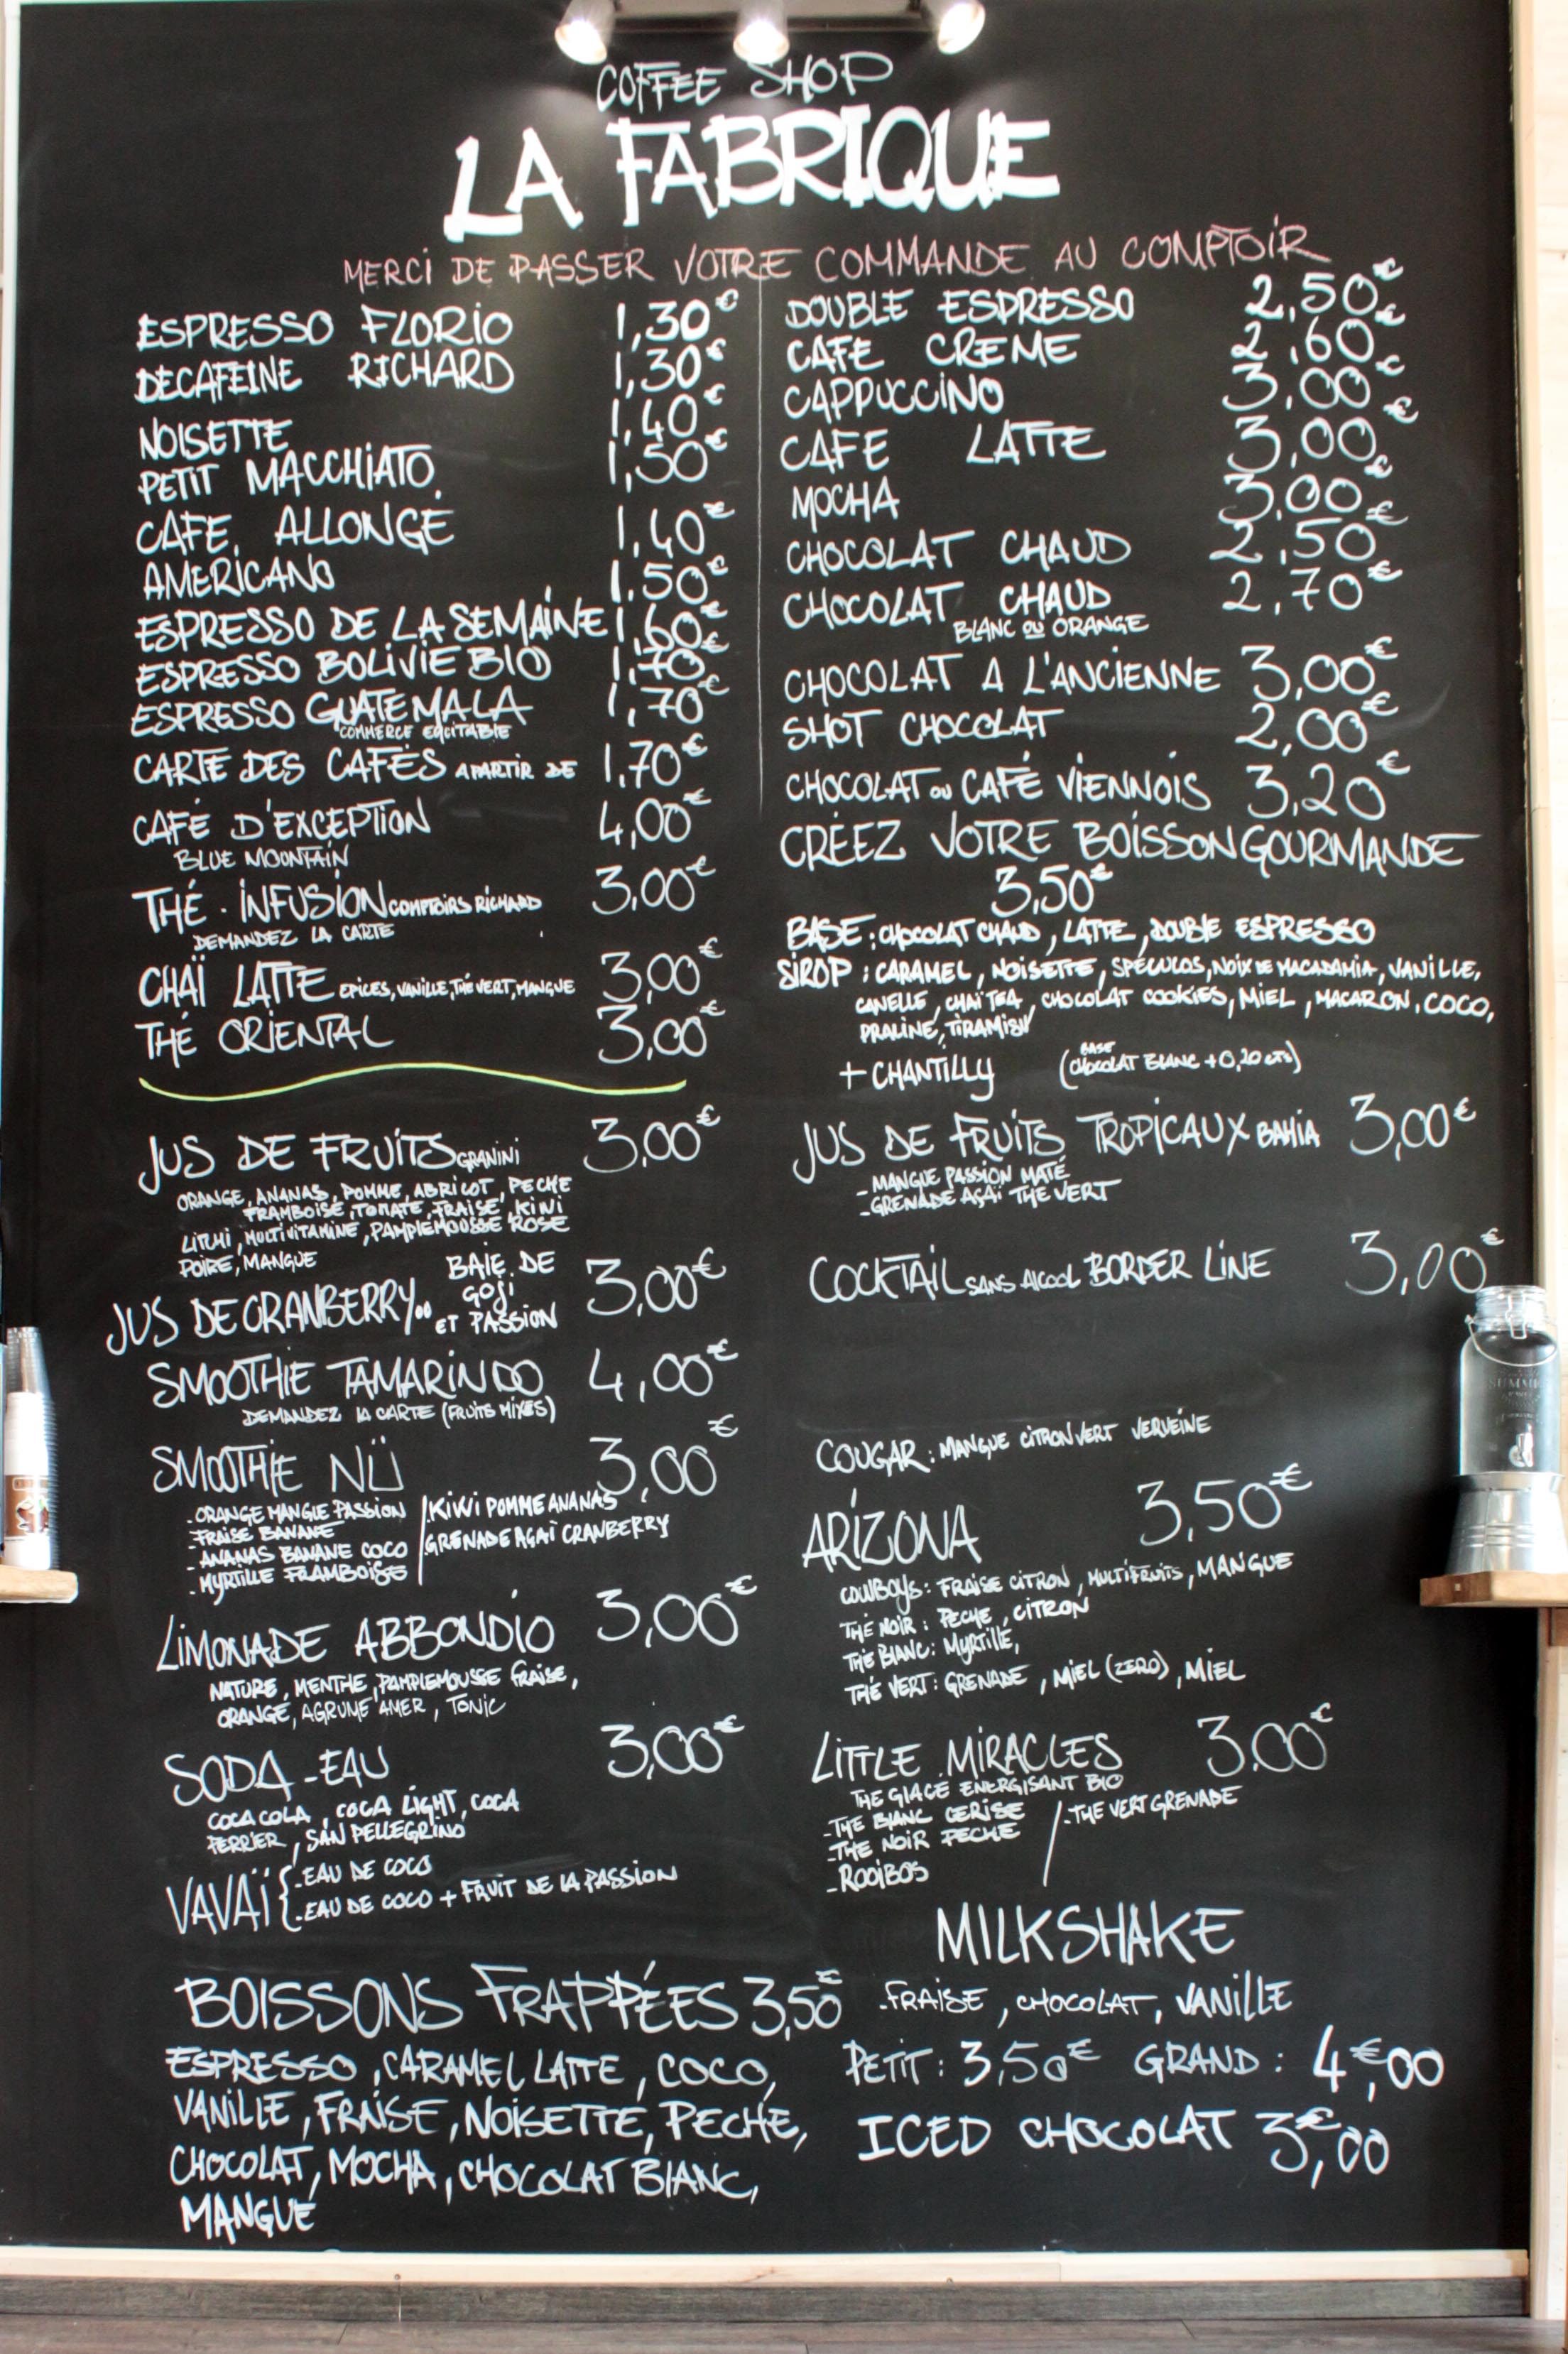 COFFEE SHOP
LA FABRIQUE
MERCI DE PASSER VOTRE COMMANDE AU COMPTOIR
ESPRESSO FLORIO 1,30€
DECAFEINE RICHARD 1,30€
NOISETTE 1,40€
PETIT MACCHIATO 1,50€
CAFE ALLONGÉ 1,40€
AMERICANO 1,50€
ESPRESSO DE LA SEMAINE 1,60€
ESPRESSO BOLIVIE BIO 1,70€
ESPRESSO GUATEMALA 1,70€
COMMERCE EQUITABLE
CARTE DES CAFÉS A PARTIR DE 1,70€
CAFÉ D'EXCEPTION 4,00€
BLUE MOUNTAIN
THÉ - INFUSION COMPTOIRS RICHARD 3,00€
DEMANDEZ LA CARTE
CHAÏ LATTE EPICES, VANILLE, THÉ VERT, MANGUE 3,00€
THÉ ORIENTAL 3,00€
DOUBLE ESPRESSO 2,50€
CAFE CREME 2,60€
CAPPUCCINO 3,00€
CAFE LATTE 3,00€
MOCHA 3,00€
CHOCOLAT CHAUD 2,50€
CHOCOLAT CHAUD 2,70€
BLANC OU ORANGE
CHOCOLAT A L'ANCIENNE 3,00€
SHOT CHOCOLAT 2,00€
CHOCOLAT OU CAFÉ VIENNOIS 3,20€
CRÉEZ VOTRE BOISSON GOURMANDE
3,50€
BASE : CHOCOLAT CHAUD, LATTE, DOUBLE ESPRESSO
SIROP : CARAMEL, NOISETTE, SPÉCULOS, NOIX DE MACADAMIA, VANILLE,
CANELLE, CHAÏ TEA, CHOCOLAT COOKIES, MIEL, MACARON, COCO,
PRALINE, TIRAMISU
+ CHANTILLY (BASE CHOCOLAT BLANC + 0,20 CTS)
JUS DE FRUITS GRANINI 3,00€
ORANGE, ANANAS, POMME, ABRICOT, PECHE
FRAMBOISE, TOMATE, FRAISE, KIWI
LITCHI, MULTIVITAMINE, PAMPLEMOUSSE ROSE
POIRE, MANGUE
JUS DE CRANBERRY OU BAIE DE GOJI ET PASSION 3,00€
SMOOTHIE TAMARINDO 4,00€
DEMANDEZ LA CARTE (FRUITS MIXES)
SMOOTHIE NÜ 3,00€
- ORANGE MANGUE PASSION
- FRAISE BANANE
- ANANAS BANANE COCO
- MYRTILLE FRAMBOISE
KIWI POMME ANANAS
GRENADE AÇAÏ CRANBERRY
LIMONADE ABBONDIO 3,00€
NATURE, MENTHE, PAMPLEMOUSSE FRAISE,
ORANGE, AGRUME AMER, TONIC
SODA - EAU 3,00€
COCA COLA, COCA LIGHT, COCA
PERRIER, SAN PELLEGRINO
VAVAÏ { - EAU DE COCO
- EAU DE COCO + FRUIT DE LA PASSION
JUS DE FRUITS TROPICAUX BAHIA 3,00€
- MANGUE PASSION MATÉ
- GRENADE AÇAÏ THE VERT
COCKTAIL SANS ALCOOL BORDER LINE 3,00€
COUGAR : MANGUE CITRON VERT VERVEINE
ARIZONA 3,50€
COWBOYS : FRAISE CITRON, MULTIFRUITS, MANGUE
THÉ NOIR : PECHE, CITRON
THÉ BLANC : MYRTILLE,
THÉ VERT : GRENADE, MIEL (ZERO), MIEL
LITTLE MIRACLES 3.00€
THE GLACE ENERGISANT BIO
- THE BLANC CERISE
- THE NOIR PECHE
- ROOIBOS
- THE VERT GRENADE
BOISSONS FRAPPÉES 3,50€
ESPRESSO, CARAMEL LATTE, COCO,
VANILLE, FRAISE, NOISETTE, PECHE,
CHOCOLAT, MOCHA, CHOCOLAT BLANC,
MANGUE
MILKSHAKE
- FRAISE, CHOCOLAT, VANILLE
PETIT : 3,50€ GRAND : 4€,00
ICED CHOCOLAT 3€,00